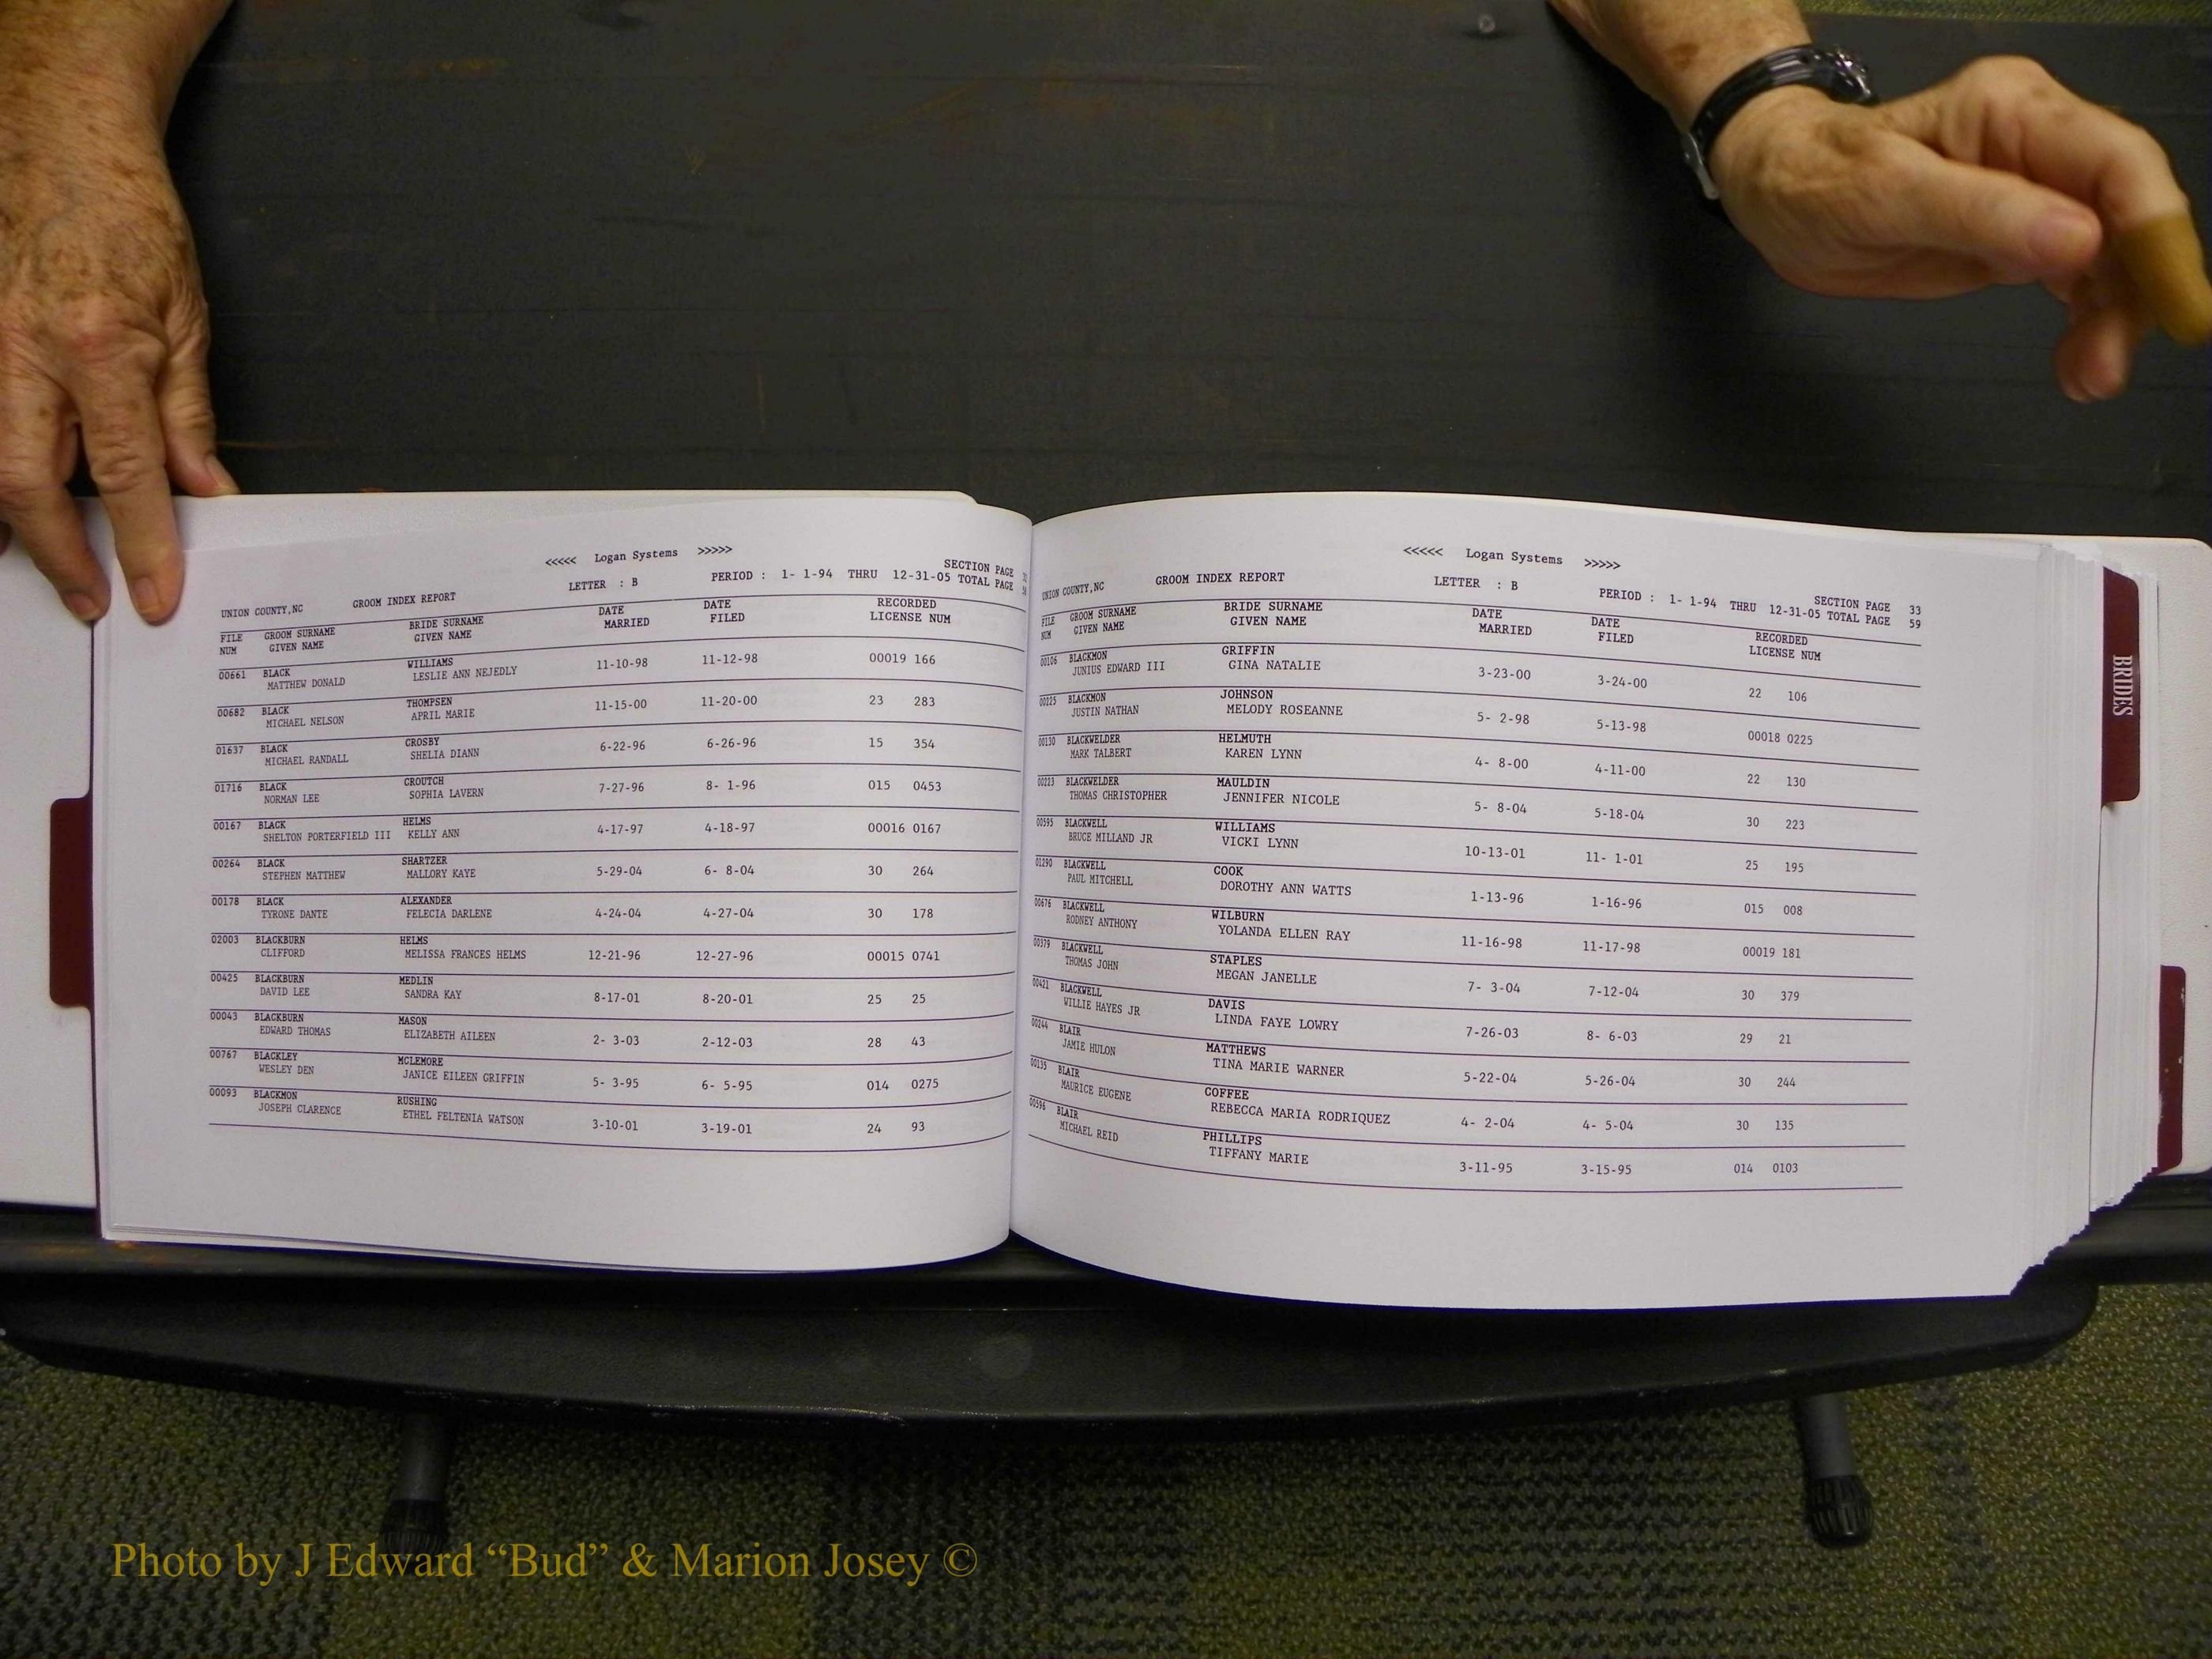 <<<<< Logan Systems >>>>>
SECTION PAGE
LETTER : B PERIOD : 1- 1-94 THRU 12-31-05 TOTAL PAGE
UNION COUNTY,NC GROOM INDEX REPORT
FILE GROOM SURNAME BRIDE SURNAME DATE DATE RECORDED
NUM GIVEN NAME GIVEN NAME MARRIED FILED LICENSE NUM
00661 BLACK WILLIAMS 11-10-98 11-12-98 00019 166
MATTHEW DONALD LESLIE ANN NEJEDLY
00682 BLACK THOMPSEN 11-15-00 11-20-00 23 283
MICHAEL NELSON APRIL MARIE
01637 BLACK CROSBY 6-22-96 6-26-96 15 354
MICHAEL RANDALL SHELIA DIANN
01716 BLACK CROUTCH 7-27-96 8- 1-96 015 0453
NORMAN LEE SOPHIA LAVERN
00167 BLACK HELMS 4-17-97 4-18-97 00016 0167
SHELTON PORTERFIELD III KELLY ANN
00264 BLACK SHARTZER 5-29-04 6- 8-04 30 264
STEPHEN MATTHEW MALLORY KAYE
00178 BLACK ALEXANDER 4-24-04 4-27-04 30 178
TYRONE DANTE FELECIA DARLENE
02003 BLACKBURN HELMS 12-21-96 12-27-96 00015 0741
CLIFFORD MELISSA FRANCES HELMS
00425 BLACKBURN MEDLIN 8-17-01 8-20-01 25 25
DAVID LEE SANDRA KAY
00043 BLACKBURN MASON 2- 3-03 2-12-03 28 43
EDWARD THOMAS ELIZABETH AILEEN
00767 BLACKLEY MCLEMORE 5- 3-95 6- 5-95 014 0275
WESLEY DEN JANICE EILEEN GRIFFIN
00093 BLACKMON RUSHING 3-10-01 3-19-01 24 93
JOSEPH CLARENCE ETHEL FELTENIA WATSON
<<<<< Logan Systems >>>>>
SECTION PAGE 33
UNION COUNTY,NC GROOM INDEX REPORT LETTER : B PERIOD : 1- 1-94 THRU 12-31-05 TOTAL PAGE 59
FILE GROOM SURNAME BRIDE SURNAME DATE DATE RECORDED
NUM GIVEN NAME GIVEN NAME MARRIED FILED LICENSE NUM
00106 BLACKMON GRIFFIN 3-23-00 3-24-00 22 106
JUNIUS EDWARD III GINA NATALIE
00225 BLACKMON JOHNSON 5- 2-98 5-13-98 00018 0225
JUSTIN NATHAN MELODY ROSEANNE
00130 BLACKWELDER HELMUTH 4- 8-00 4-11-00 22 130
MARK TALBERT KAREN LYNN
00223 BLACKWELDER MAULDIN 5- 8-04 5-18-04 30 223
THOMAS CHRISTOPHER JENNIFER NICOLE
00595 BLACKWELL WILLIAMS 10-13-01 11- 1-01 25 195
BRUCE MILLAND JR VICKI LYNN
01290 BLACKWELL COOK 1-13-96 1-16-96 015 008
PAUL MITCHELL DOROTHY ANN WATTS
00676 BLACKWELL WILBURN 11-16-98 11-17-98 00019 181
RODNEY ANTHONY YOLANDA ELLEN RAY
00379 BLACKWELL STAPLES 7- 3-04 7-12-04 30 379
THOMAS JOHN MEGAN JANELLE
00421 BLACKWELL DAVIS 7-26-03 8- 6-03 29 21
WILLIE HAYES JR LINDA FAYE LOWRY
00244 BLAIR MATTHEWS 5-22-04 5-26-04 30 244
JAMIE HULON TINA MARIE WARNER
00135 BLAIR COFFEE 4- 2-04 4- 5-04 30 135
MAURICE EUGENE REBECCA MARIA RODRIQUEZ
00596 BLAIR PHILLIPS 3-11-95 3-15-95 014 0103
MICHAEL REID TIFFANY MARIE
BRIDES
Photo by J Edward “Bud” & Marion Josey ©